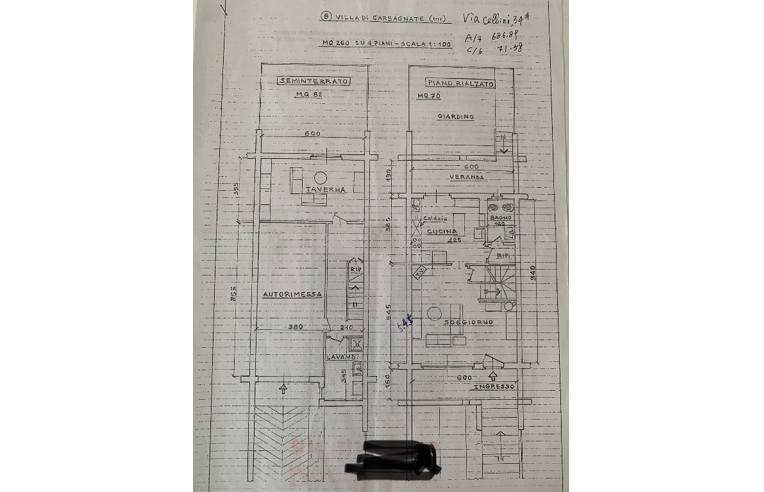 ⑧ VILLA DI GARBAGNATE (MI)
Via Cellini, 34
A/7 686.89
C/6 71.58
MQ 260 SU 4 PIANI - SCALA 1:100
SEMINTERRATO
MQ 82
600
355
TAVERNA
RIP
855
AUTORIMESSA
380
210
LAVAND.
345
PIANO RIALZATO
MQ 70
GIARDINO
600
190
VERANDA
385
Caldaia
CUCINA
425
BAGNO
RIP.
940
545
SOGGIORNO
160
600
INGRESSO